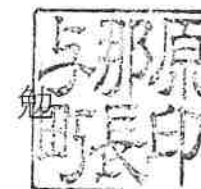 与那原
町長印
勉